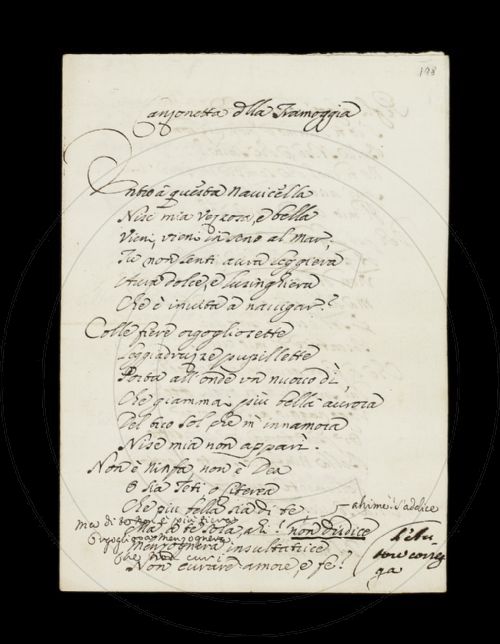 198
Canzonetta dlla Tramoggia
Entro a questa navicella
Nise mia vezzosa, e bella
Vieni, vieni in seno al mar;
Tu non senti aura leggiera
Aura dolce, e lusinghiera
Che è invita a navigar?
Colle fiere orgogliosette
Leggiadruzze pupillette
Porta all'onde un nuovo dì,
Che giammai più bella aurora
Del bico sol, che n' innamora
Nise mia non apparì.
Non è Ninfa, non è Dea
O sia Teti o Citerea
Che più bella sia di te
Ma te sola, ah! non d
menzognera insultatrice
Non curare amore, e fè?
ahimè!
Ma di
menzognera
che non curi
L'Au
tore correg
ga